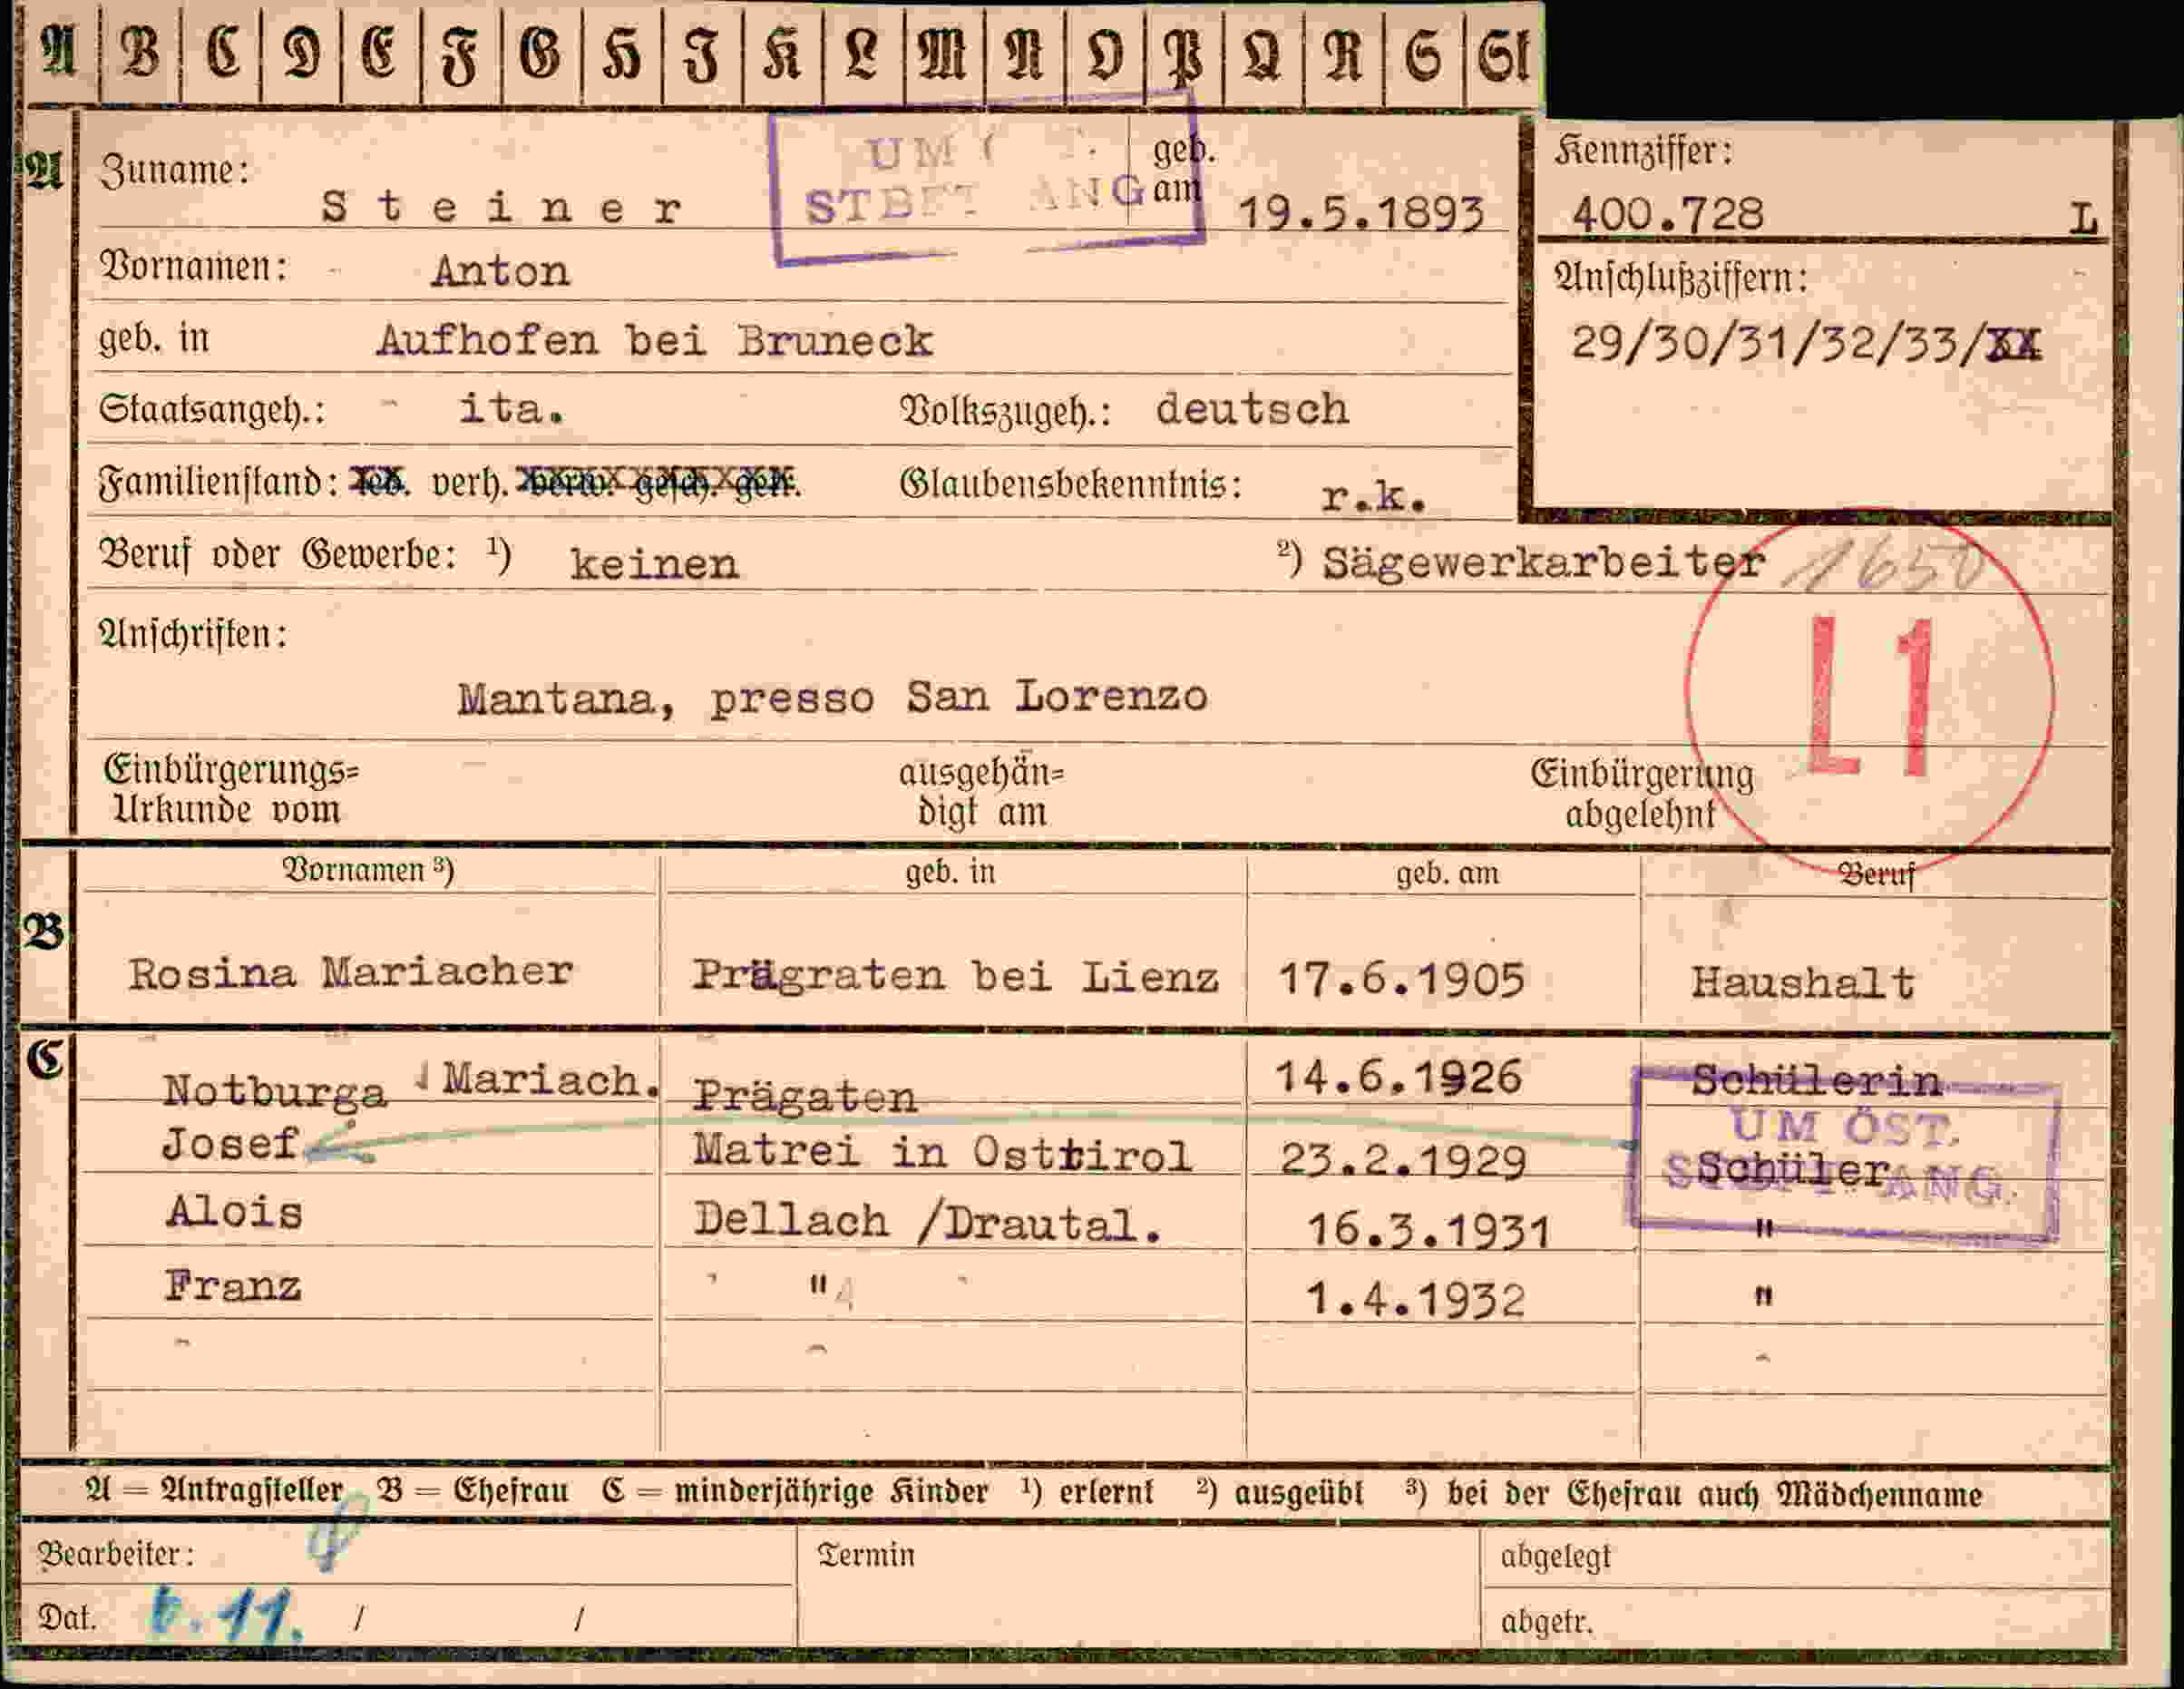 A B C D E F G H I K L M N O P Q R S St
A Zuname: S t e i n e r geb. am 19.5.1893
UM
Vornamen: Anton
geb. in Aufhofen bei Bruneck
Staatsangeh.: ita. Volkszugeh.: deutsch
Familienstand: led. verh. verw. gesch. getr. Glaubensbekenntnis: r.k.
Kennziffer:
400.728 L
Anschlußziffern:
29/30/31/32/33/XX
Beruf oder Gewerbe: ¹) keinen ²) Sägewerkarbeiter 1650
L1
Anschriften:
Mantana, presso San Lorenzo
Einbürgerungs=
Urkunde vom
ausgehän=
digt am
Einbürgerung
abgelehnt
Vornamen ³) geb. in geb. am Beruf
B Rosina Mariacher Prägraten bei Lienz 17.6.1905 Haushalt
C Notburga Mariach. Prägaten 14.6.1926 Schülerin
UM ÖST.
Josef Matrei in Osttirol 23.2.1929 Schüler
ANG.
Alois Dellach /Drautal. 16.3.1931 "
Franz " 1.4.1932 "
A = Antragsteller B = Ehefrau C = minderjährige Kinder ¹) erlernt ²) ausgeübt ³) bei der Ehefrau auch Mädchenname
Bearbeiter: Termin abgelegt
Dat. 6.11. / / abgetr.